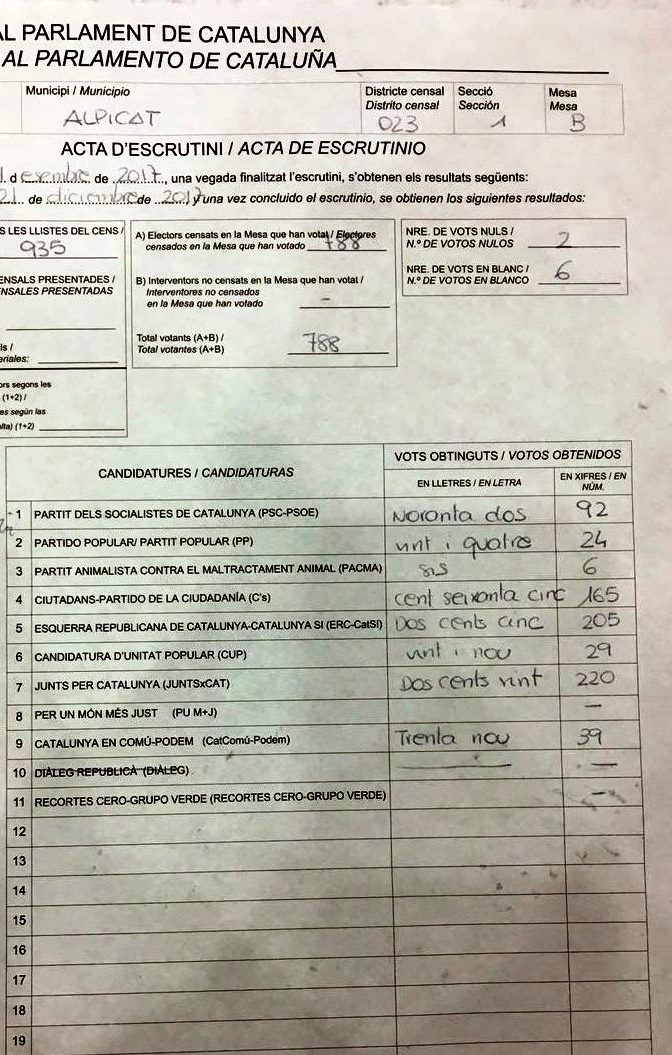 AL PARLAMENT DE CATALUNYA
AL PARLAMENTO DE CATALUÑA
Municipi / Municipio
ALPICAT
Districte censal
Distrito censal
023
Secció
Sección
1
Mesa
Mesa
B
ACTA D'ESCRUTINI / ACTA DE ESCRUTINIO
1 desembre de 2017, una vegada finalitzat l'escrutini, s'obtenen els resultats següents:
21 de diciembre de 2017 y una vez concluido el escrutinio, se obtienen los siguientes resultados:
S LES LLISTES DEL CENS /
935
ENSALS PRESENTADES /
NSALES PRESENTADAS
ls /
eriales:
ors segons les
(1+2) /
es según las
lta) (1+2)
A) Electors censats en la Mesa que han votat / Electores
censados en la Mesa que han votado 788
B) Interventors no censats en la Mesa que han votat /
Interventores no censados
en la Mesa que han votado –
Total votants (A+B) /
Total votantes (A+B) 788
NRE. DE VOTS NULS /
N.º DE VOTOS NULOS 2
NRE. DE VOTS EN BLANC /
N.º DE VOTOS EN BLANCO 6
CANDIDATURES / CANDIDATURAS
VOTS OBTINGUTS / VOTOS OBTENIDOS
EN LLETRES / EN LETRA
EN XIFRES / EN NÚM.
1 PARTIT DELS SOCIALISTES DE CATALUNYA (PSC-PSOE) Noranta dos 92
2 PARTIDO POPULAR/ PARTIT POPULAR (PP) vint i quatre 24
3 PARTIT ANIMALISTA CONTRA EL MALTRACTAMENT ANIMAL (PACMA) sis 6
4 CIUTADANS-PARTIDO DE LA CIUDADANÍA (C's) cent seixanta cinc 165
5 ESQUERRA REPUBLICANA DE CATALUNYA-CATALUNYA SI (ERC-CatSI) Dos cents cinc 205
6 CANDIDATURA D'UNITAT POPULAR (CUP) vint i nou 29
7 JUNTS PER CATALUNYA (JUNTSxCAT) Dos cents vint 220
8 PER UN MÓN MÉS JUST (PU M+J) —
9 CATALUNYA EN COMÚ-PODEM (CatComú-Podem) Trenta nou 39
10 DIÀLEG REPUBLICÀ (DIÀLEG) — —
11 RECORTES CERO-GRUPO VERDE (RECORTES CERO-GRUPO VERDE) —
12
13
14
15
16
17
18
19